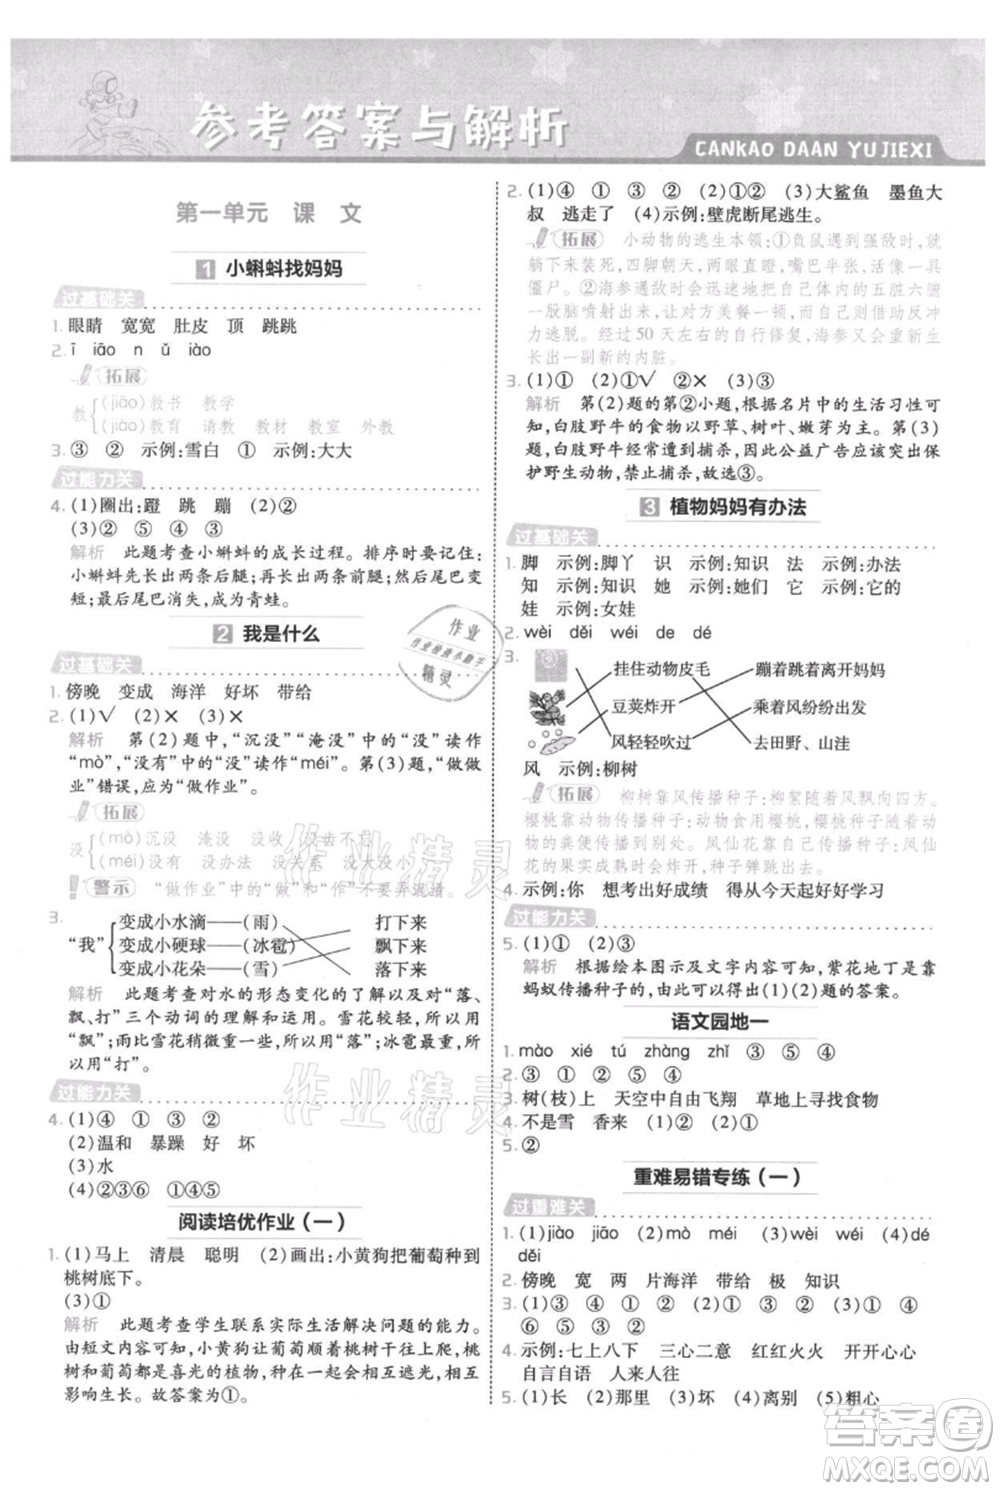 参考答案与解析
CANKAO DAAN YU JIEXI
第一单元 课文
1 小蝌蚪找妈妈
过基础关
1.眼睛 宽宽 肚皮 顶 跳跳
2.ī iāo n ǔ iào
拓展
教
(jiāo)教书 教学
(jiào)教育 请教 教材 教室 外教
3.③ ② 示例:雪白 ① 示例:大大
过能力关
4.(1)圈出:蹬 跳 蹦 (2)②
(3)② ⑤ ④ ③
解析 此题考查小蝌蚪的成长过程。排序时注意,
小蝌蚪先长出两条后腿;再长出两条前腿;然后尾巴变
短;最后尾巴消失,成为青蛙。
2 我是什么
过基础关
1.傍晚 变成 海洋 好坏 带给
2.(1)√ (2)× (3)×
解析 第(2)题中,“沉没”“淹没”中的“没”读作
“mò”,“没有”中的“没”读作“méi”。第(3)题,“做做
业”错误,应为“做作业”。
拓展
没
(mò)沉没 淹没 没收 没齿不忘
(méi)没有 没办法 没关系 没大没小
警示 “做作业”中的“做”和“作”不要弄混淆。
3.
“我”
变成小水滴——(雨) 打下来
变成小硬球——(冰雹) 飘下来
变成小花朵——(雪) 落下来
解析 此题考查对水的形态变化的了解以及对“落、
飘、打”三个动词的理解和运用。雪花较轻,所以用
“飘”;雨点比雪花稍微重一些,所以用“落”;冰雹重,所
以用“打”。
过能力关
4.(1)④ ① ③ ②
(2)温和 暴躁 好 坏
(3)水
(4)②③⑥ ①④⑤
阅读培优作业(一)
1.(1)马上 清晨 聪明 (2)画出:小黄狗把葡萄种到
桃树底下。
(3)①
解析 此题考查学生联系实际生活解决问题的能力。
由短文内容可知,小黄狗让葡萄顺着桃树干往上爬,桃
树和葡萄都是喜光的植物,种在一起会互相争抢阳光,
影响生长。故答案为①。
2.(1)④ ① ③ ② (2)①② (3)大鲨鱼 墨鱼大
叔 逃走了 (4)示例:壁虎断尾逃生。
拓展 小动物的逃生本领:①负鼠遇到强敌时,就
躺下来装死,四脚朝天,眼睛直瞪,嘴巴半张,活像一具
僵尸。②海参遇到敌人时,会迅速地把体内的五脏六腑
一股脑喷射出来,让对方美餐一顿,而自身借助反冲
力逃脱。经过 50 天左右的自行修复,海参又会重新生
长出一副新的内脏。
3.(1)① (2)①√ ②× (3)③
解析 第(2)题的第②小题,根据名片中的生活习性可
知,白肢野牛的食物以野草、树叶、嫩芽为主。第(3)
题,因为白肢野牛经常遭到捕杀,公益广告应该突出保
护野生动物,禁止捕杀,故选③。
3 植物妈妈有办法
过基础关
1.脚 示例:脚丫 识 示例:知识 法 示例:办法
知 示例:知识 她 示例:她们 它 示例:它的
娃 示例:女娃
2.wèi děi wéi de dé
3.
挂住动物皮毛 蹦着跳着离开妈妈
豆荚炸开 乘着风纷纷出发
风轻轻吹过 去田野、山洼
风 示例:柳树
拓展 柳树靠风传播种子:柳絮随风飘向四方。
樱桃靠动物传播种子:动物食用樱桃,樱桃种子随动
物的粪便传播到各处。凤仙花靠弹射传播种子:凤仙
花的果实成熟时会炸开,种子弹跳出去。
4.示例:你 想考出好成绩 得从今天起好好学习
过能力关
5.(1)① (2)③
解析 根据绘本图片及文字内容可知,紫花地丁是靠
蚂蚁传播种子的,由此可以得出(1)(2)题的答案。
语文园地一
1.mào xié tú zhàng zhǐ ③ ⑤ ④
2.② ⑤ ① ③ ④
3.树(枝)上 天空中自由飞翔 草地上寻找食物
4.不是雪 香来 (1)② (2)①
5.②
重难易错专练(一)
过重难关
1.(1)jiào jiāo (2)mò méi (3)wéi wèi (4)dé de
děi
2.傍晚 宽 两 片海洋 带给 极 知识
3.(1)① (2)④ (3)③ (4)② (5)② (6)①
4.示例:七上八下 三心二意 红红火火 开开心心
自言自语 人来人往
5.(1)长 (2)那里 (3)坏 (4)离别 (5)粗心
作业
作业检查小助手
精灵
作业精灵
作业精灵
答案圈
MXQE.COM